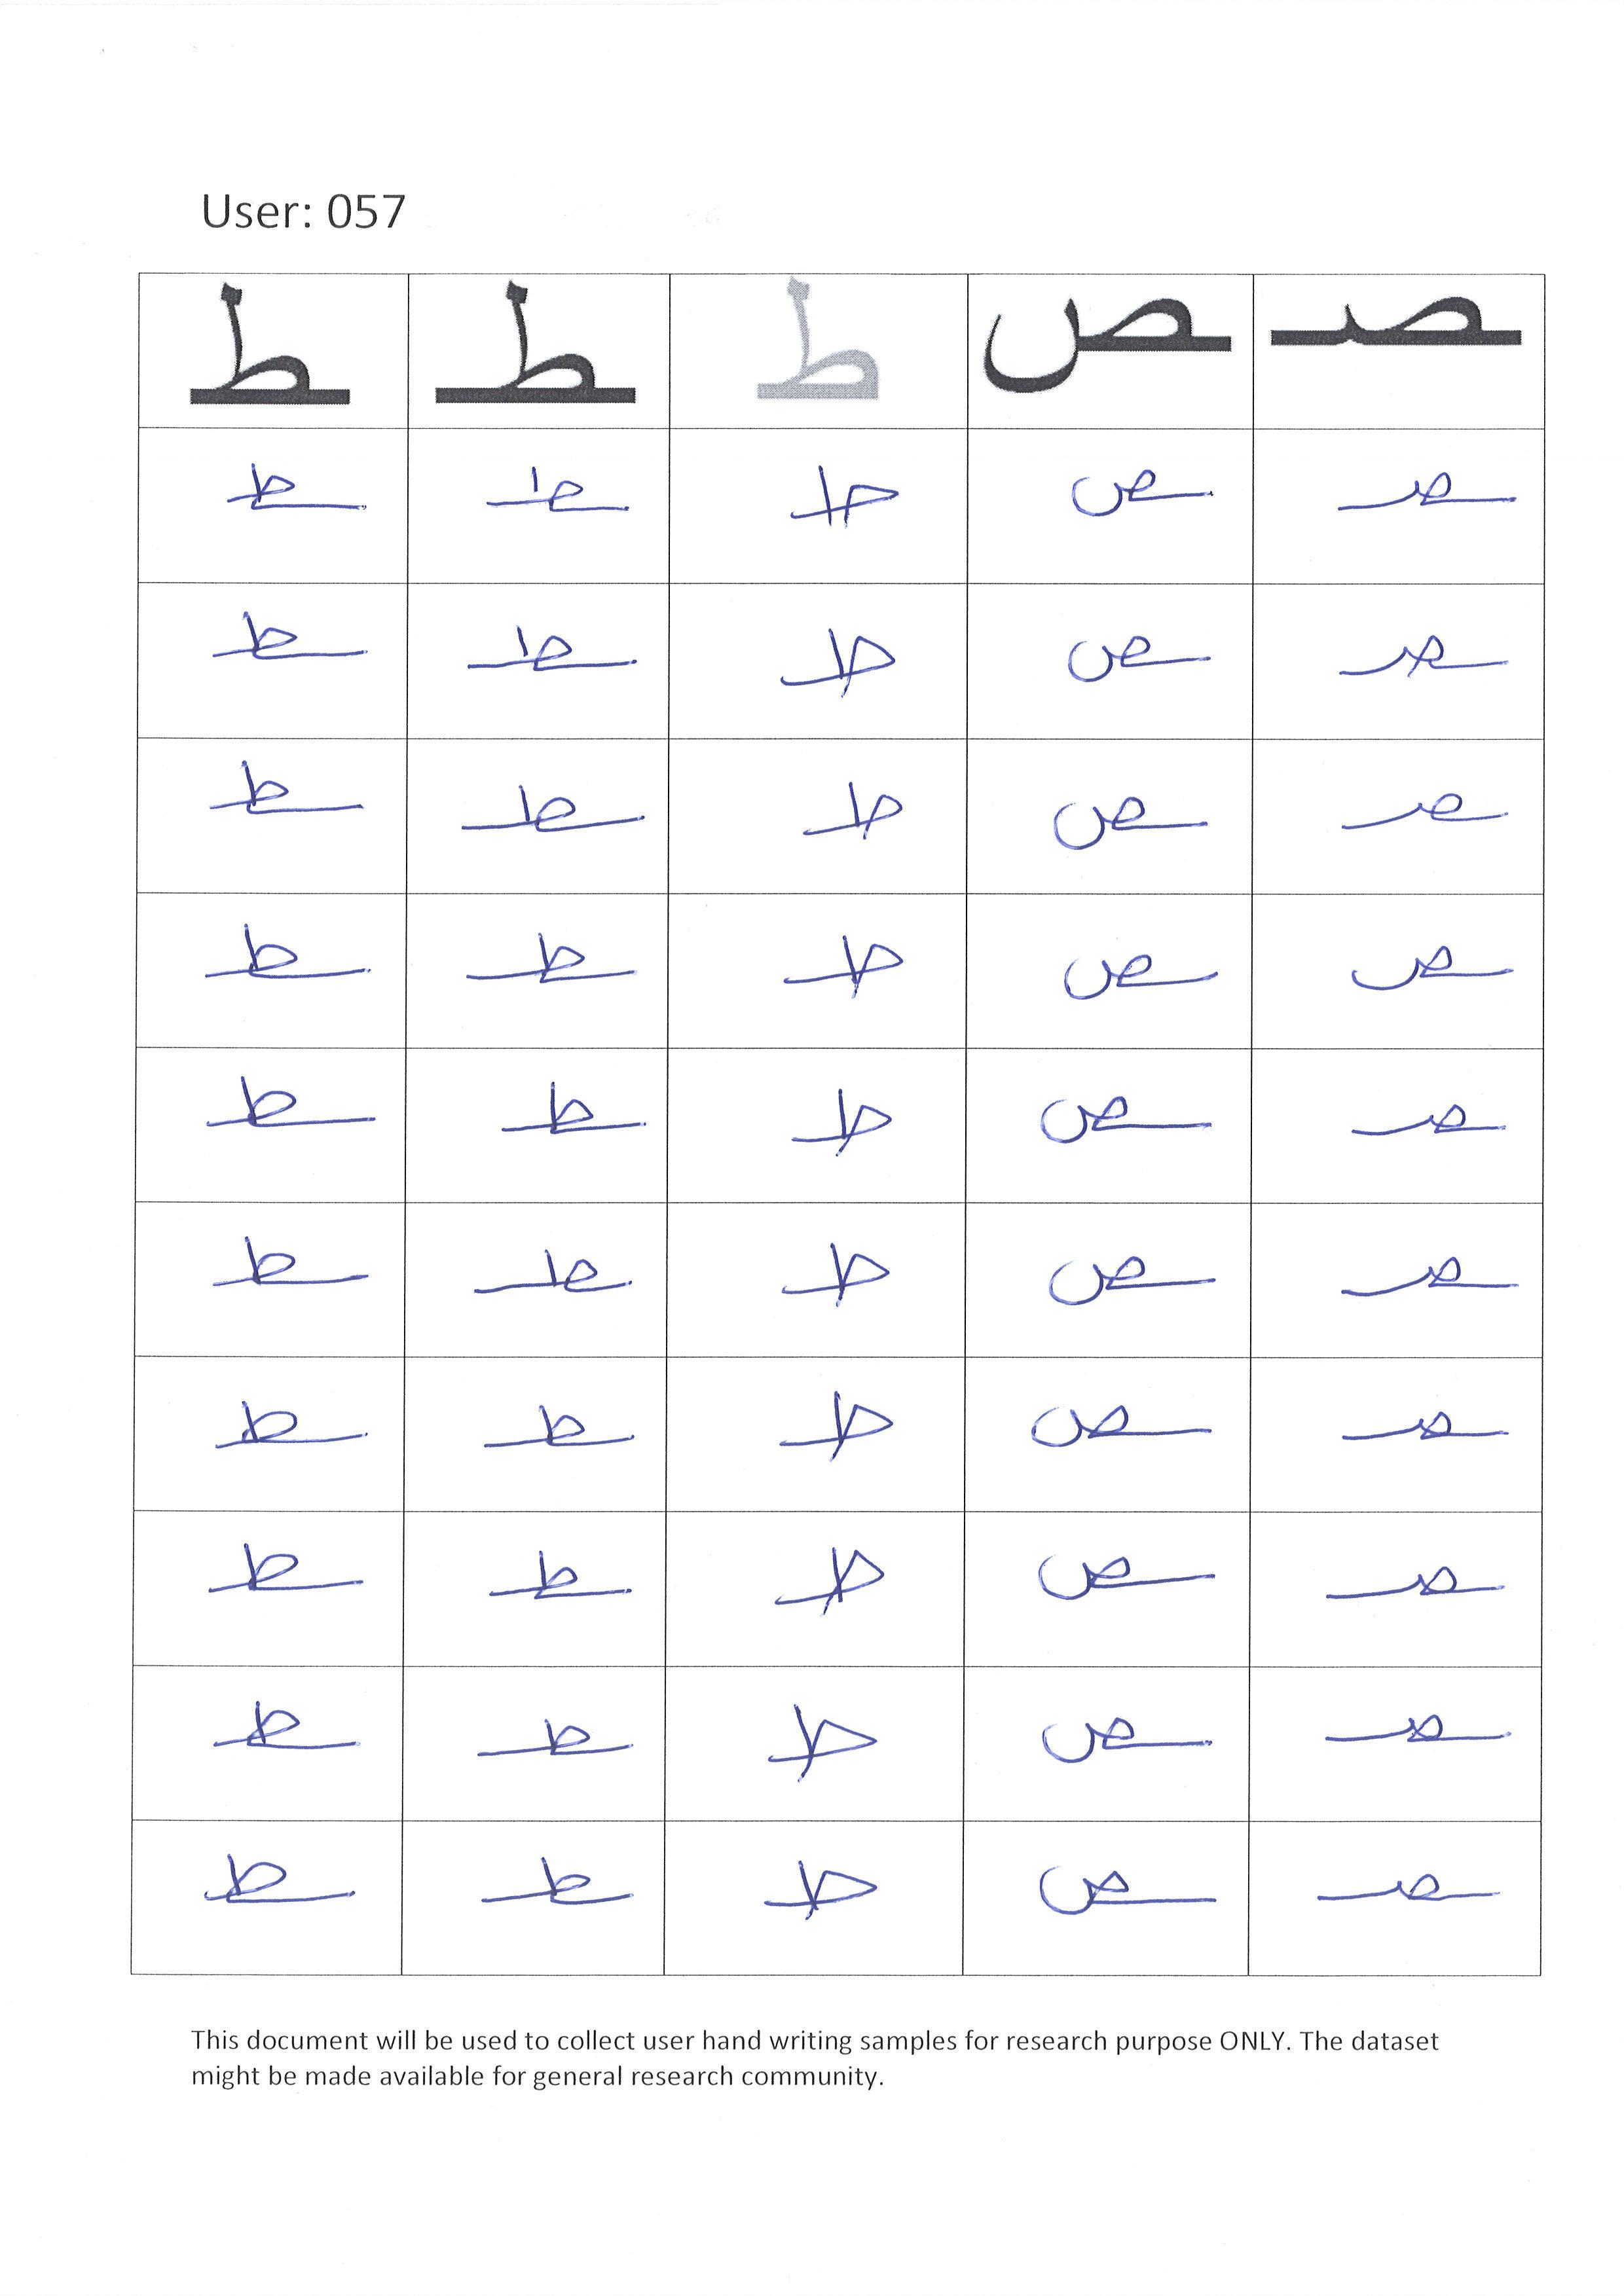 User: 057
ـط ـطـ ط ـص ـصـ
ـطـ ـطـ ط ـص ـصـ
ـطـ ـطـ ط ـص ـصـ
ـطـ ـطـ ط ـص ـصـ
ـطـ ـطـ ط ـص ـص
ـطـ ـطـ ط ـص ـصـ
ـطـ ـطـ ط ـص ـصـ
ـطـ ـطـ ط ـص ـصـ
ـطـ ـطـ ط ـص ـصـ
ـطـ ـطـ ط ـص ـصـ
ـطـ ـطـ ط ـص ـصـ
This document will be used to collect user hand writing samples for research purpose ONLY. The dataset
might be made available for general research community.